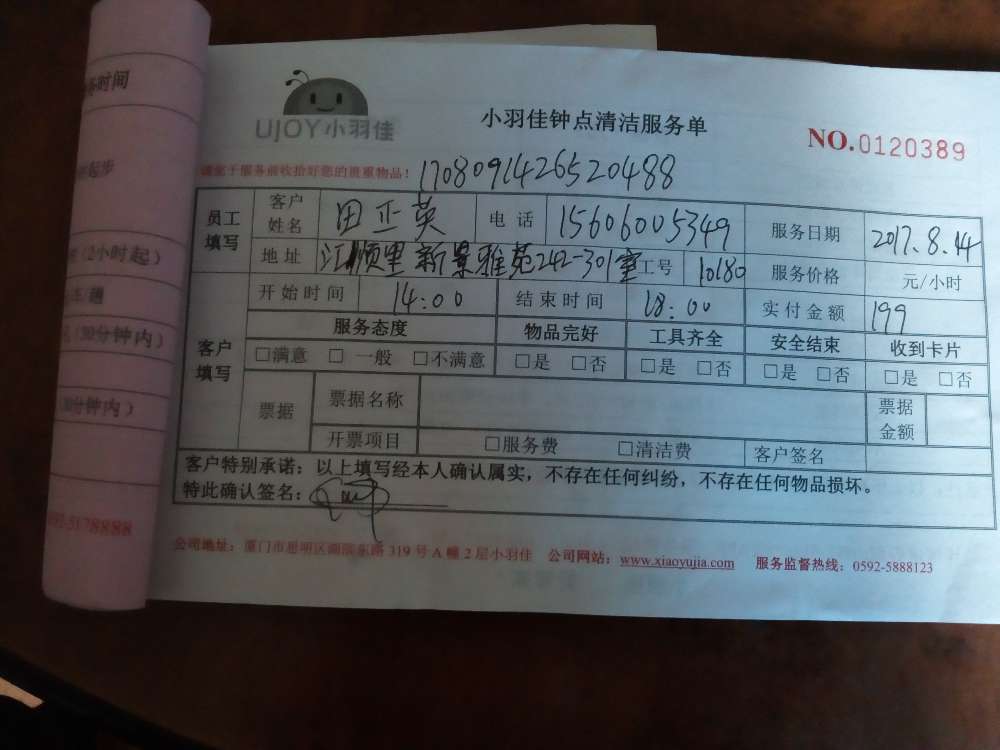 务时间
起步
(2小时起)
(30分钟内)
(30分钟内)
0592-5178888
UJOY小羽佳
小羽佳钟点清洁服务单
NO.0120389
请您于服务前收拾好您的贵重物品! 1708091426520488
员工填写 客户姓名 田正英 电话 15606005349 服务日期 2017.8.14
地址 江顺里新景雅苑242-301室 工号 10180 服务价格 元/小时
开始时间 14:00 结束时间 18:00 实付金额 199
客户填写 服务态度 物品完好 工具齐全 安全结束 收到卡片
□满意 □一般 □不满意 □是 □否 □是 □否 □是 □否 □是 □否
票据 票据名称 票据金额
开票项目 □服务费 □清洁费 客户签名
客户特别承诺:以上填写经本人确认属实,不存在任何纠纷,不存在任何物品损坏。
特此确认签名:
公司地址:厦门市思明区湖滨东路319号A幢2层小羽佳 公司网站:www.xiaoyujia.com 服务监督热线:0592-5888123